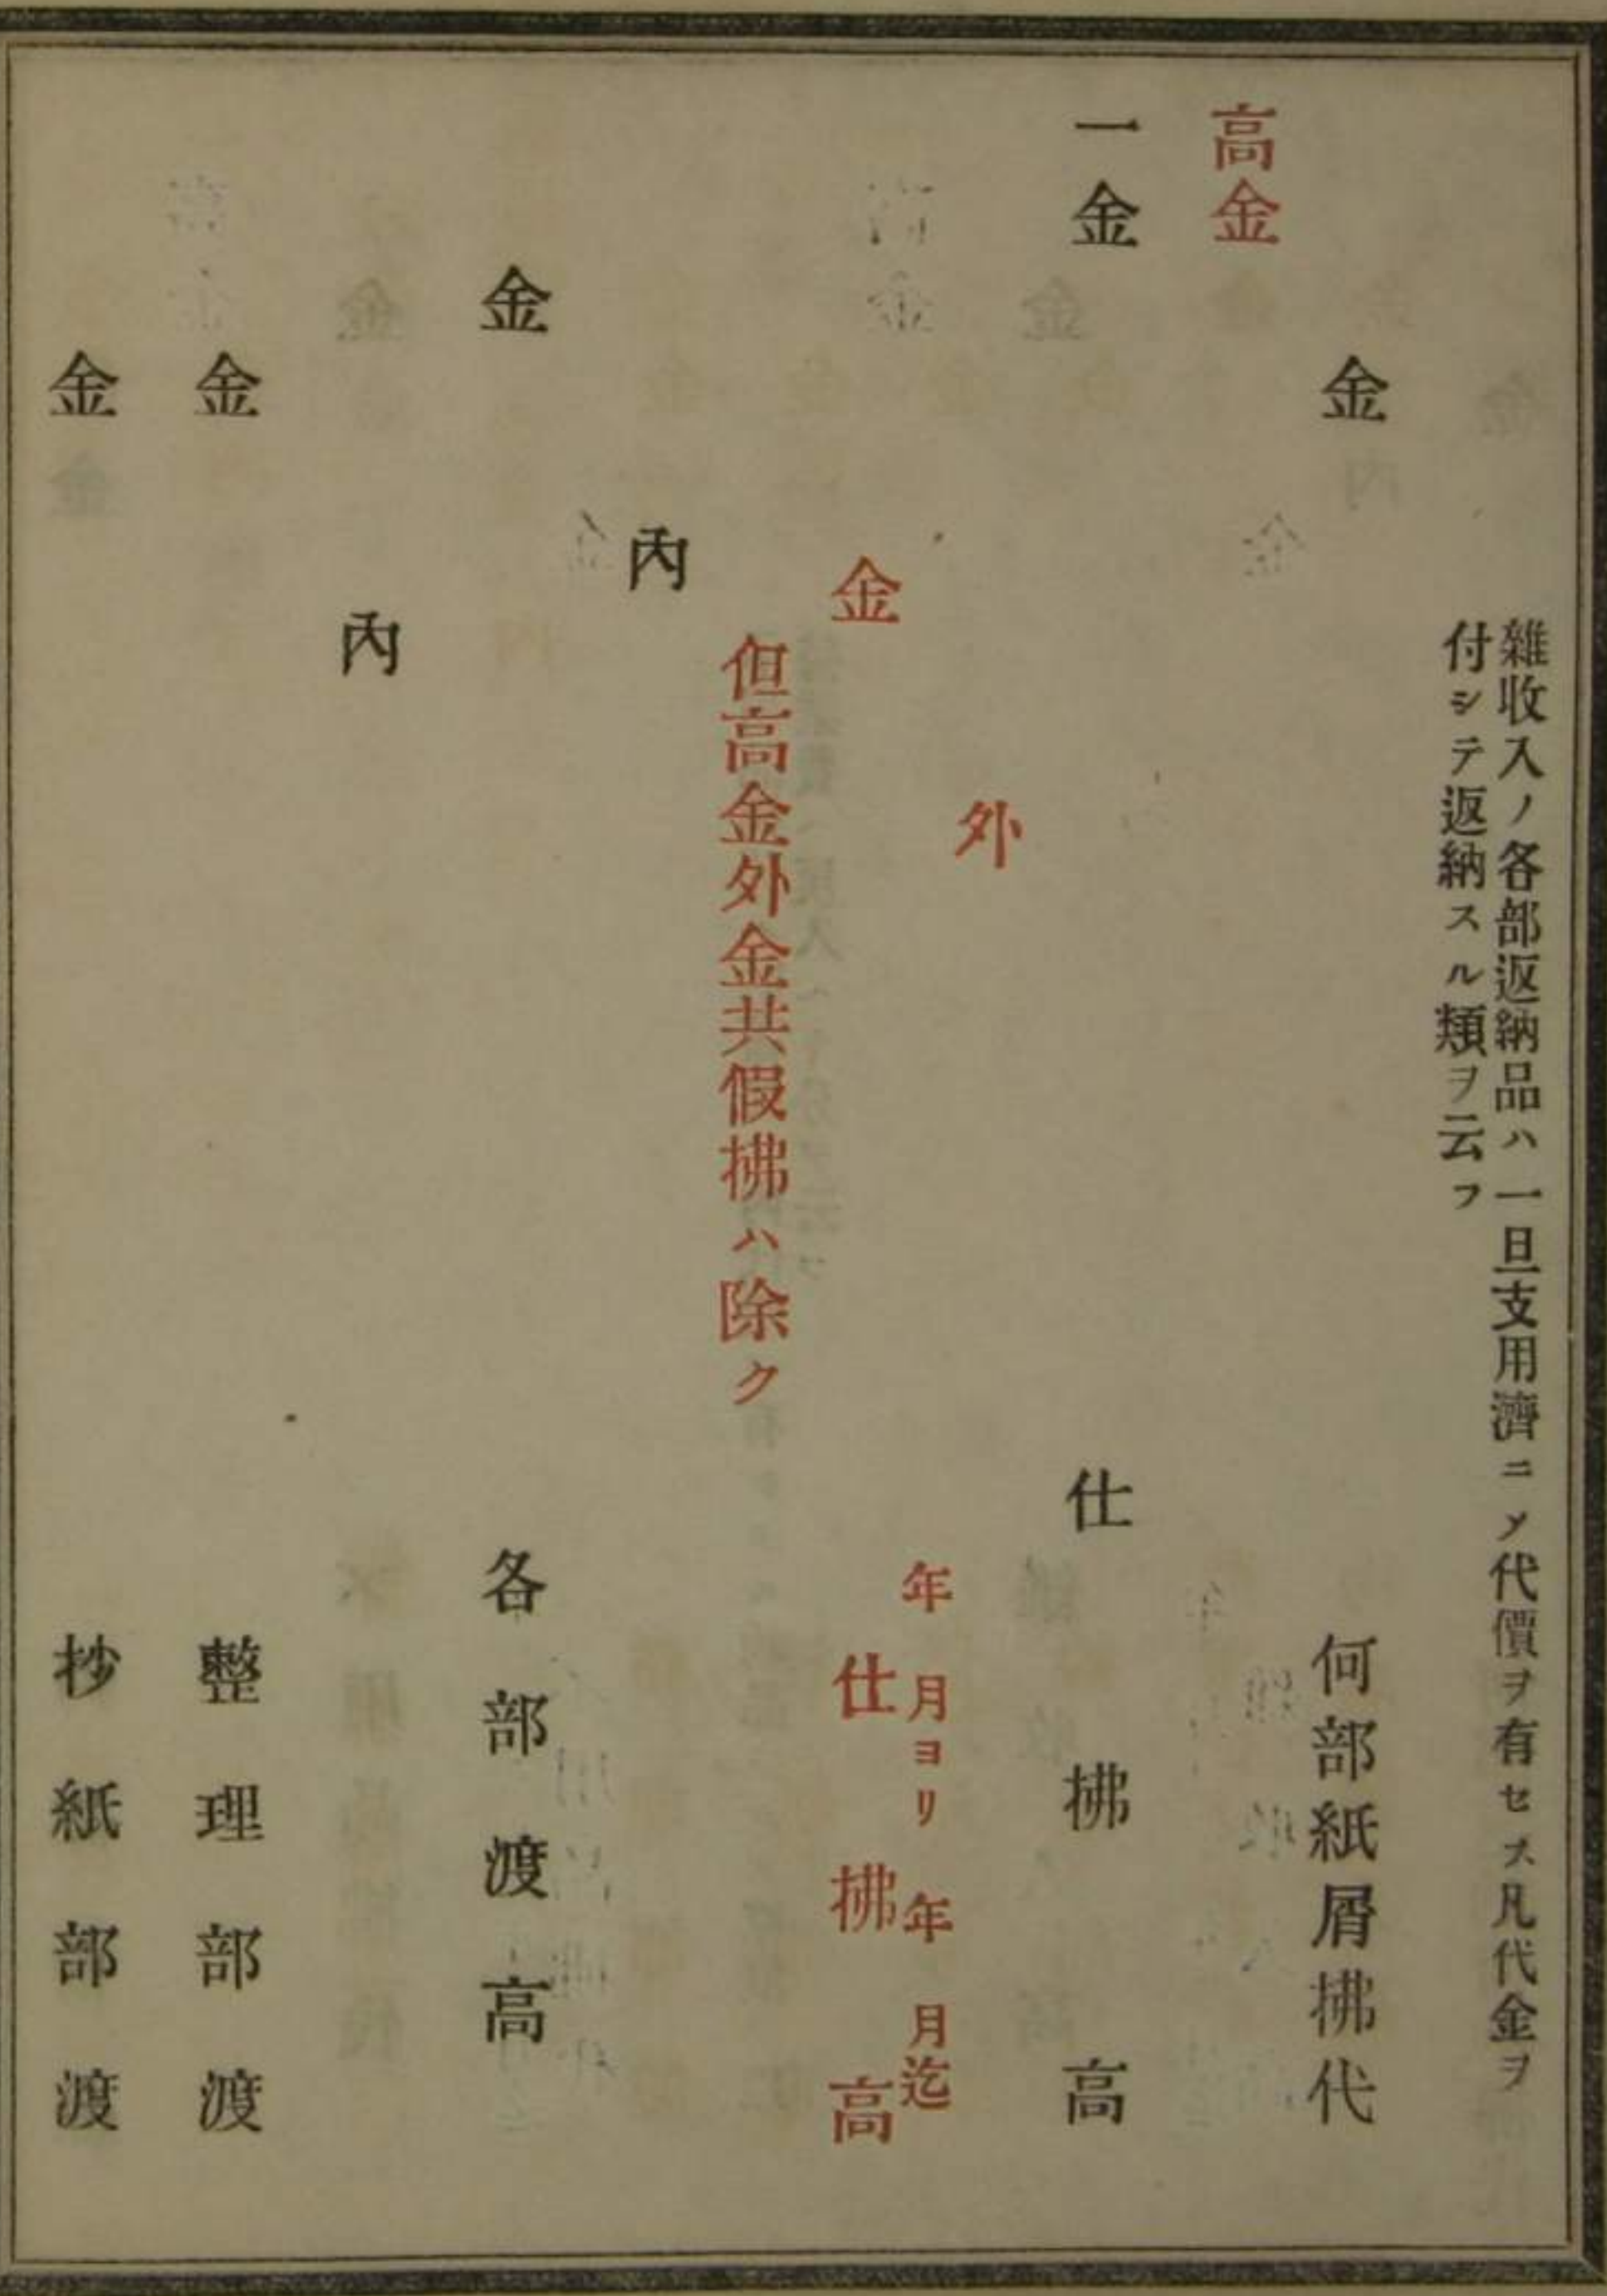 雜收入ノ各部返納品ハ一旦支用濟ニメ代價ヲ有セス凡代金ヲ
付シテ返納スル類ヲ云フ
金 何部紙屑拂代
高金
一金 仕拂高
外
年 月ヨリ 年 月迄
金 仕拂高
但高金外金共假拂ハ除ク
內
金 各部渡高
內
金 整理部渡
金 抄紙部渡